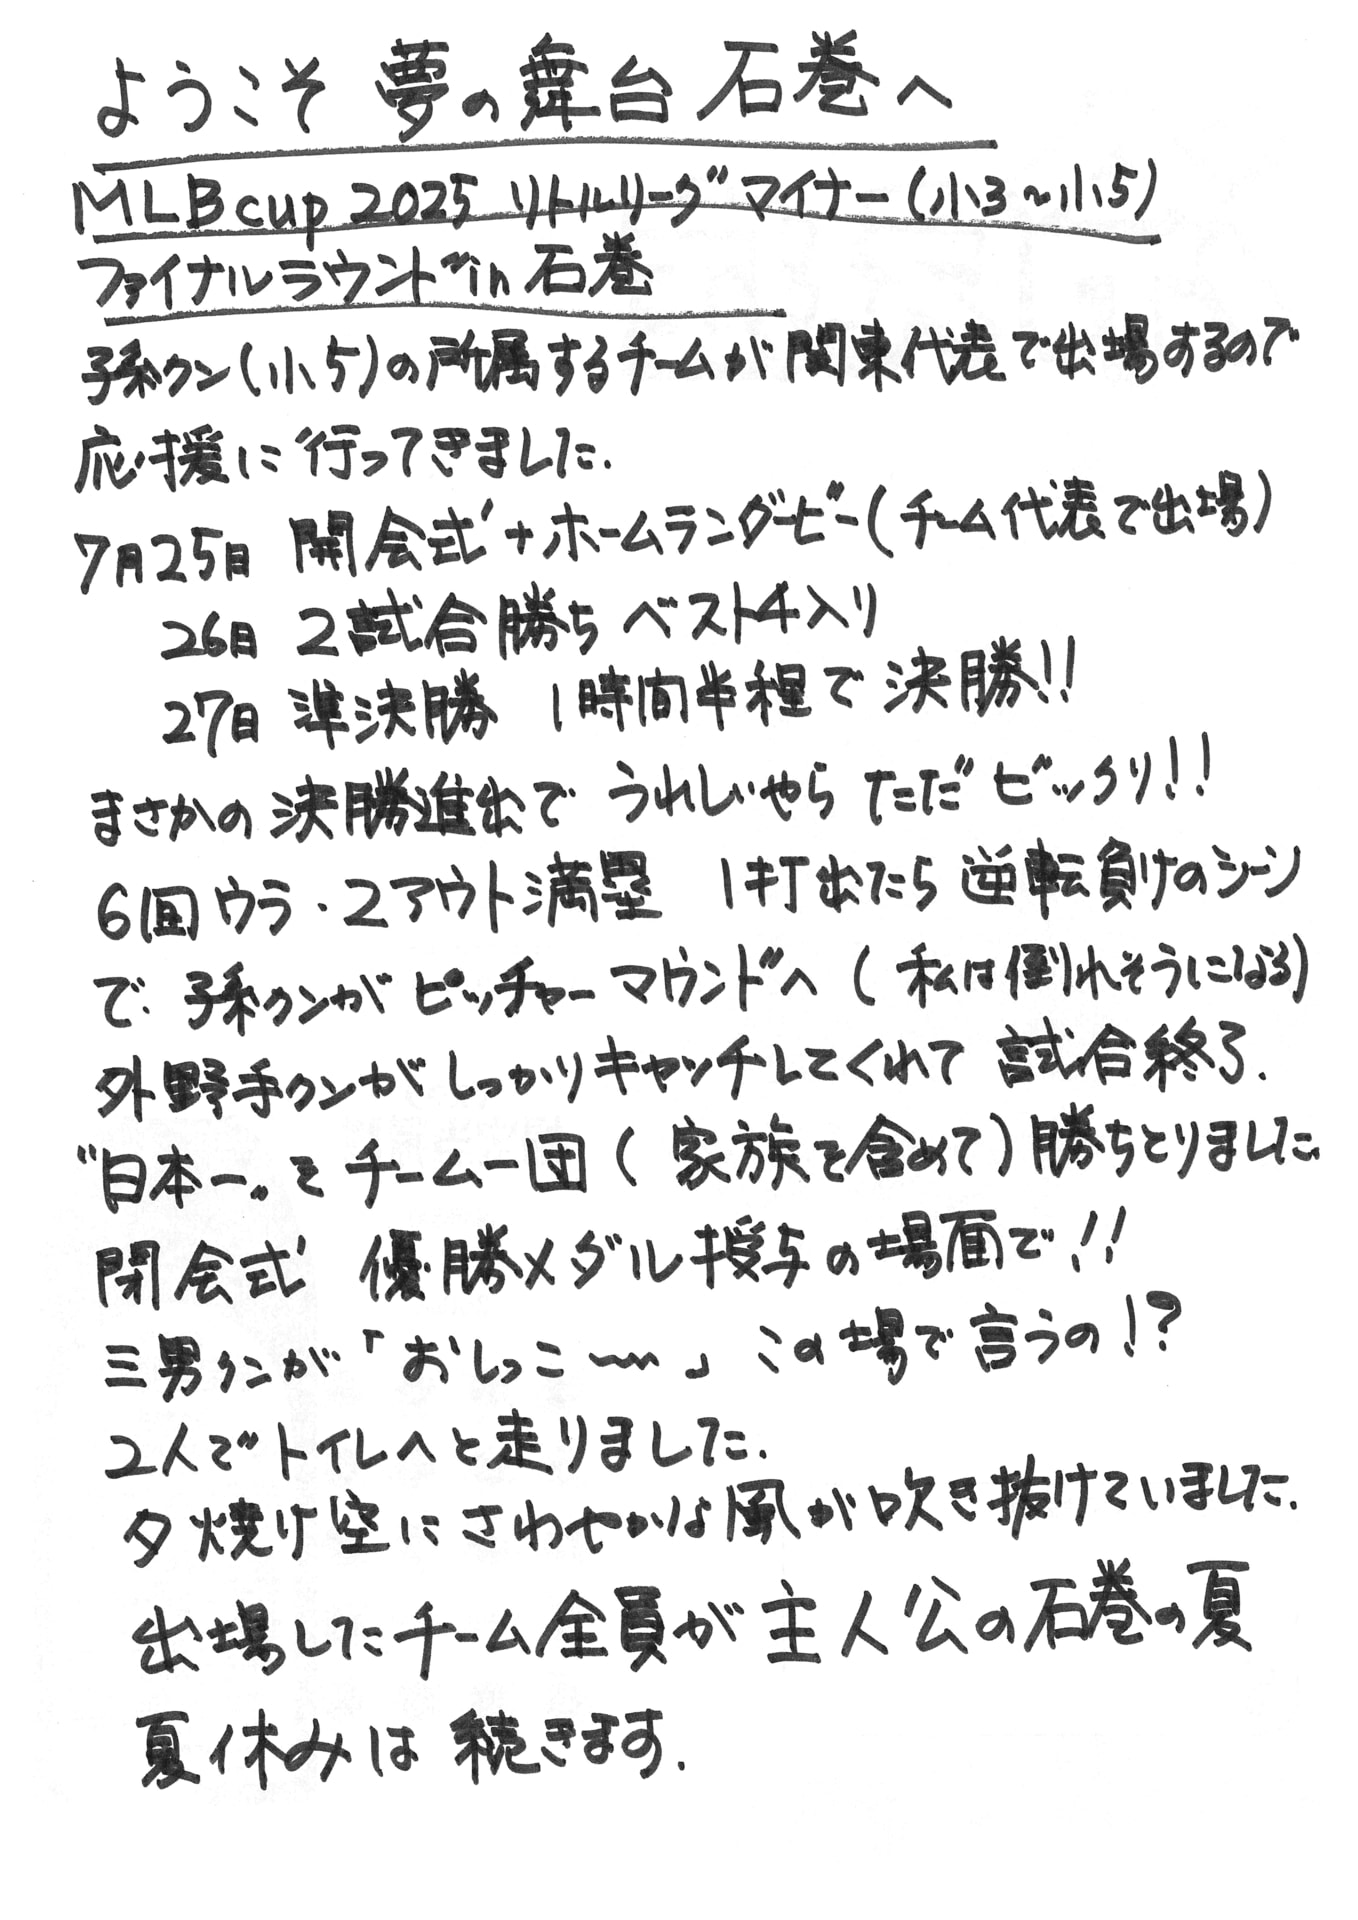 ようこそ 夢の舞台 石巻へ
MLBcup 2025 リトルリーグ マイナー(小3～小5)
ファイナルラウンドin 石巻
孫クン(小5)の所属するチームが関東代表で出場するので
応援に行ってきました.
7月25日 開会式+ホームランダービー(チーム代表で出場)
26日 2試合勝ち ベスト4入り
27日 準決勝 1時間半程で決勝!!
まさかの決勝進出で うれしいやら ただビックリ!!
6回ウラ・2アウト満塁 1打出たら逆転負けのシーン
で. 孫クンがピッチャーマウンドへ(私は倒れそうになる)
外野手クンがしっかりキャッチしてくれて 試合終了.
"日本一"を チーム一団(家族を含めて)勝ちとりました.
閉会式 優勝メダル授与の場面で!!
三男クンが「おしっこ〜〜」この場で言うの!?
2人でトイレへと走りました.
夕焼け空にさわやかな風が吹き抜けていました.
出場したチーム全員が主人公の石巻の夏
夏休みは 続きます.